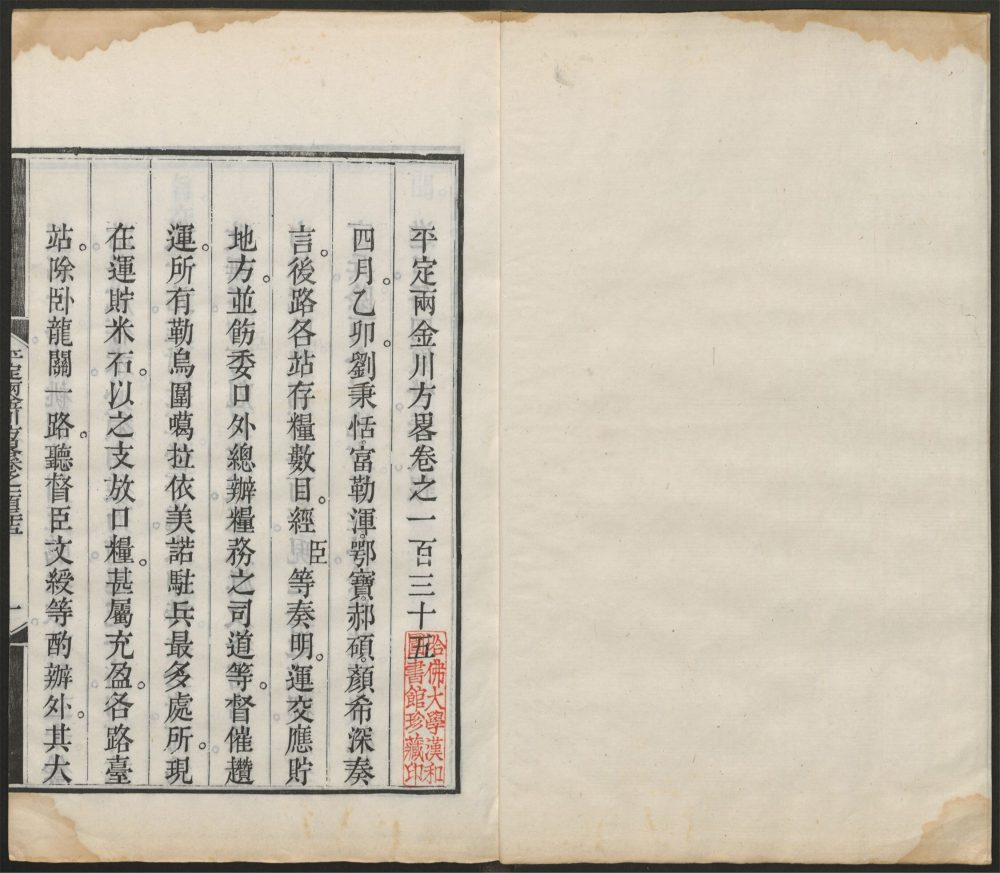 平定兩金川方畧卷之一百三十五
四月。乙卯。劉秉恬富勒渾鄂寶郝碩顏希深奏
言。後路各站存糧數目。經臣等奏明。運交應貯
地方。並飭委口外總辦糧務之司道等。督催趲
運。所有勒烏圍噶拉依美諾駐兵最多處所。現
在運貯米石。以之支放口糧。甚屬充盈。各路臺
站。除卧龍關一路。聽督臣文綬等酌辦外。其大
哈佛大學漢和
圖書館珍藏印